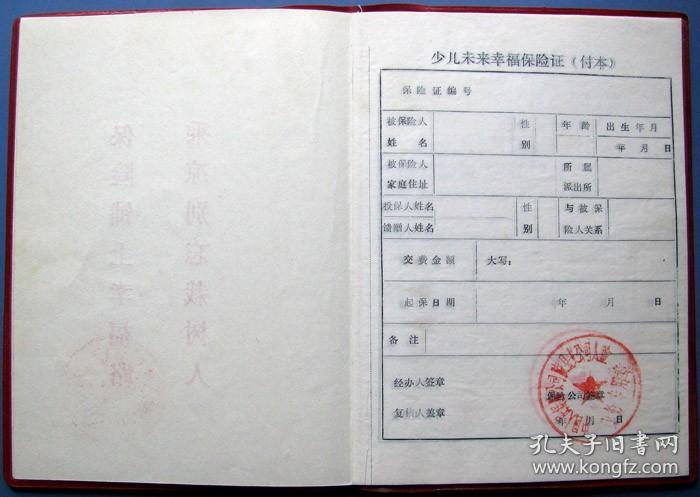 乘凉别忘栽树人
保险铺上幸福路
少儿未来幸福保险证（付本）
保险证编号
被保险人姓名 性别 年龄 出生年月
年 月 日
被保险人家庭住址 所属派出所
投保人姓名 性别 与被保险人关系
馈赠人姓名
交费金额 大写：
起保日期 年 月 日
备注
经办人签章
保险公司签章
复核人盖章 年 月 日
孔夫子旧书网
www.kongfz.com